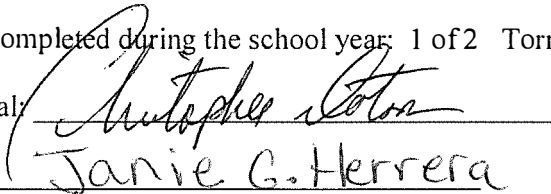 ompleted during the school year: 1 of 2 Torn
al: Christopher
Janie G. Herrera